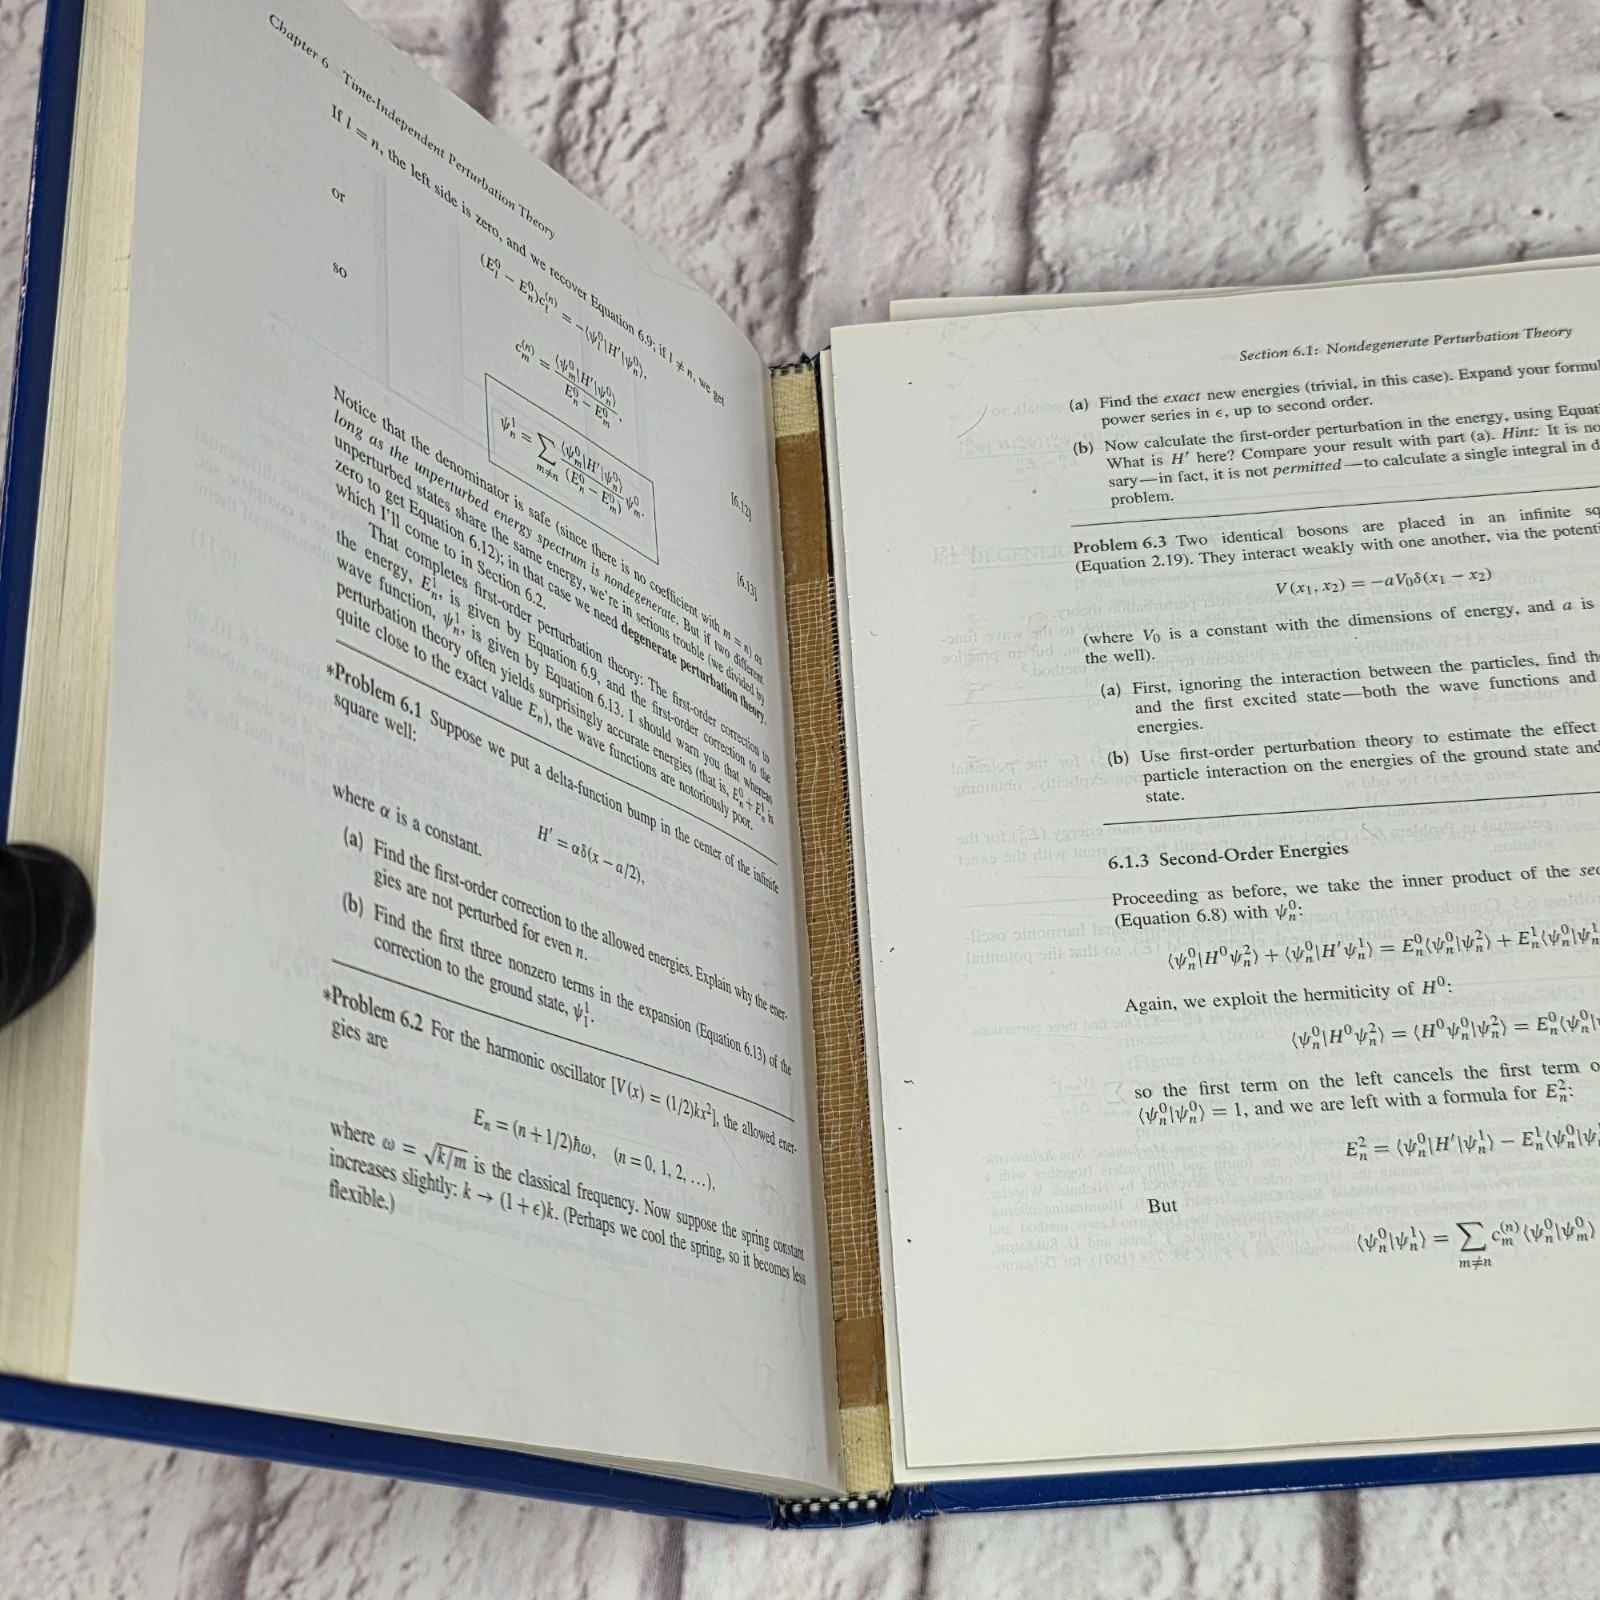 Chapter 6 Time-Independent Perturbation Theory
If l = n, the left side is zero, and we recover Equation 6.9; if l ≠ n, we get
(E_l^0 − E_n^0)c_l^(n) = −⟨ψ_l^0|H′|ψ_n^0⟩,
or
c_m^(n) = ⟨ψ_m^0|H′|ψ_n^0⟩ / (E_n^0 − E_m^0), [6.12]
so
ψ_n^1 = ∑_{m≠n} ⟨ψ_m^0|H′|ψ_n^0⟩ / (E_n^0 − E_m^0) ψ_m^0. [6.13]
Notice that the denominator is safe (since there is no coefficient with m = n) as
long as the unperturbed energy spectrum is nondegenerate. But if two different
unperturbed states share the same energy, we're in serious trouble (we divided by
zero to get Equation 6.12); in that case we need degenerate perturbation theory,
which I'll come to in Section 6.2.
That completes first-order perturbation theory: The first-order correction to
the energy, E_n^1, is given by Equation 6.9, and the first-order correction to the
wave function, ψ_n^1, is given by Equation 6.13. I should warn you that whereas
perturbation theory often yields surprisingly accurate energies (that is, E_n^0 + E_n^1 is
quite close to the exact value E_n), the wave functions are notoriously poor.
*Problem 6.1 Suppose we put a delta-function bump in the center of the infinite
square well:
H′ = αδ(x − a/2),
where α is a constant.
(a) Find the first-order correction to the allowed energies. Explain why the ener-
gies are not perturbed for even n.
(b) Find the first three nonzero terms in the expansion (Equation 6.13) of the
correction to the ground state, ψ_1^1.
*Problem 6.2 For the harmonic oscillator [V(x) = (1/2)kx²], the allowed ener-
gies are
E_n = (n + 1/2)ħω, (n = 0, 1, 2, …),
where ω = √k/m is the classical frequency. Now suppose the spring constant
increases slightly: k → (1 + ϵ)k. (Perhaps we cool the spring, so it becomes less
flexible.)
Section 6.1: Nondegenerate Perturbation Theory
(a) Find the exact new energies (trivial, in this case). Expand your
power series in ϵ, up to second order.
(b) Now calculate the first-order perturbation in the energy, using
What is H′ here? Compare your result with part (a). Hint: It is
sary—in fact, it is not permitted—to calculate a single integral in
problem.
Problem 6.3 Two identical bosons are placed in an infinite
(Equation 2.19). They interact weakly with one another, via the
V(x₁, x₂) = −aV₀δ(x₁ − x₂)
(where V₀ is a constant with the dimensions of energy, and a is
the well).
(a) First, ignoring the interaction between the particles, find
and the first excited state—both the wave functions and
energies.
(b) Use first-order perturbation theory to estimate the effect
particle interaction on the energies of the ground state and
state.
6.1.3 Second-Order Energies
Proceeding as before, we take the inner product of the
(Equation 6.8) with ψ_n^0:
⟨ψ_n^0|H^0ψ_n^2⟩ + ⟨ψ_n^0|H′ψ_n^1⟩ = E_n^0⟨ψ_n^0|ψ_n^2⟩ + E_n^1⟨ψ_n^0|ψ_n^1
Again, we exploit the hermiticity of H^0:
⟨ψ_n^0|H^0ψ_n^2⟩ = ⟨H^0ψ_n^0|ψ_n^2⟩ = E_n^0⟨ψ_n^0|
so the first term on the left cancels the first term
⟨ψ_n^0|ψ_n^0⟩ = 1, and we are left with a formula for E_n^2:
E_n^2 = ⟨ψ_n^0|H′|ψ_n^1⟩ − E_n^1⟨ψ_n^0|
But
⟨ψ_n^0|ψ_n^1⟩ = ∑_{m≠n} c_m^(n)⟨ψ_n^0|ψ_m^0⟩